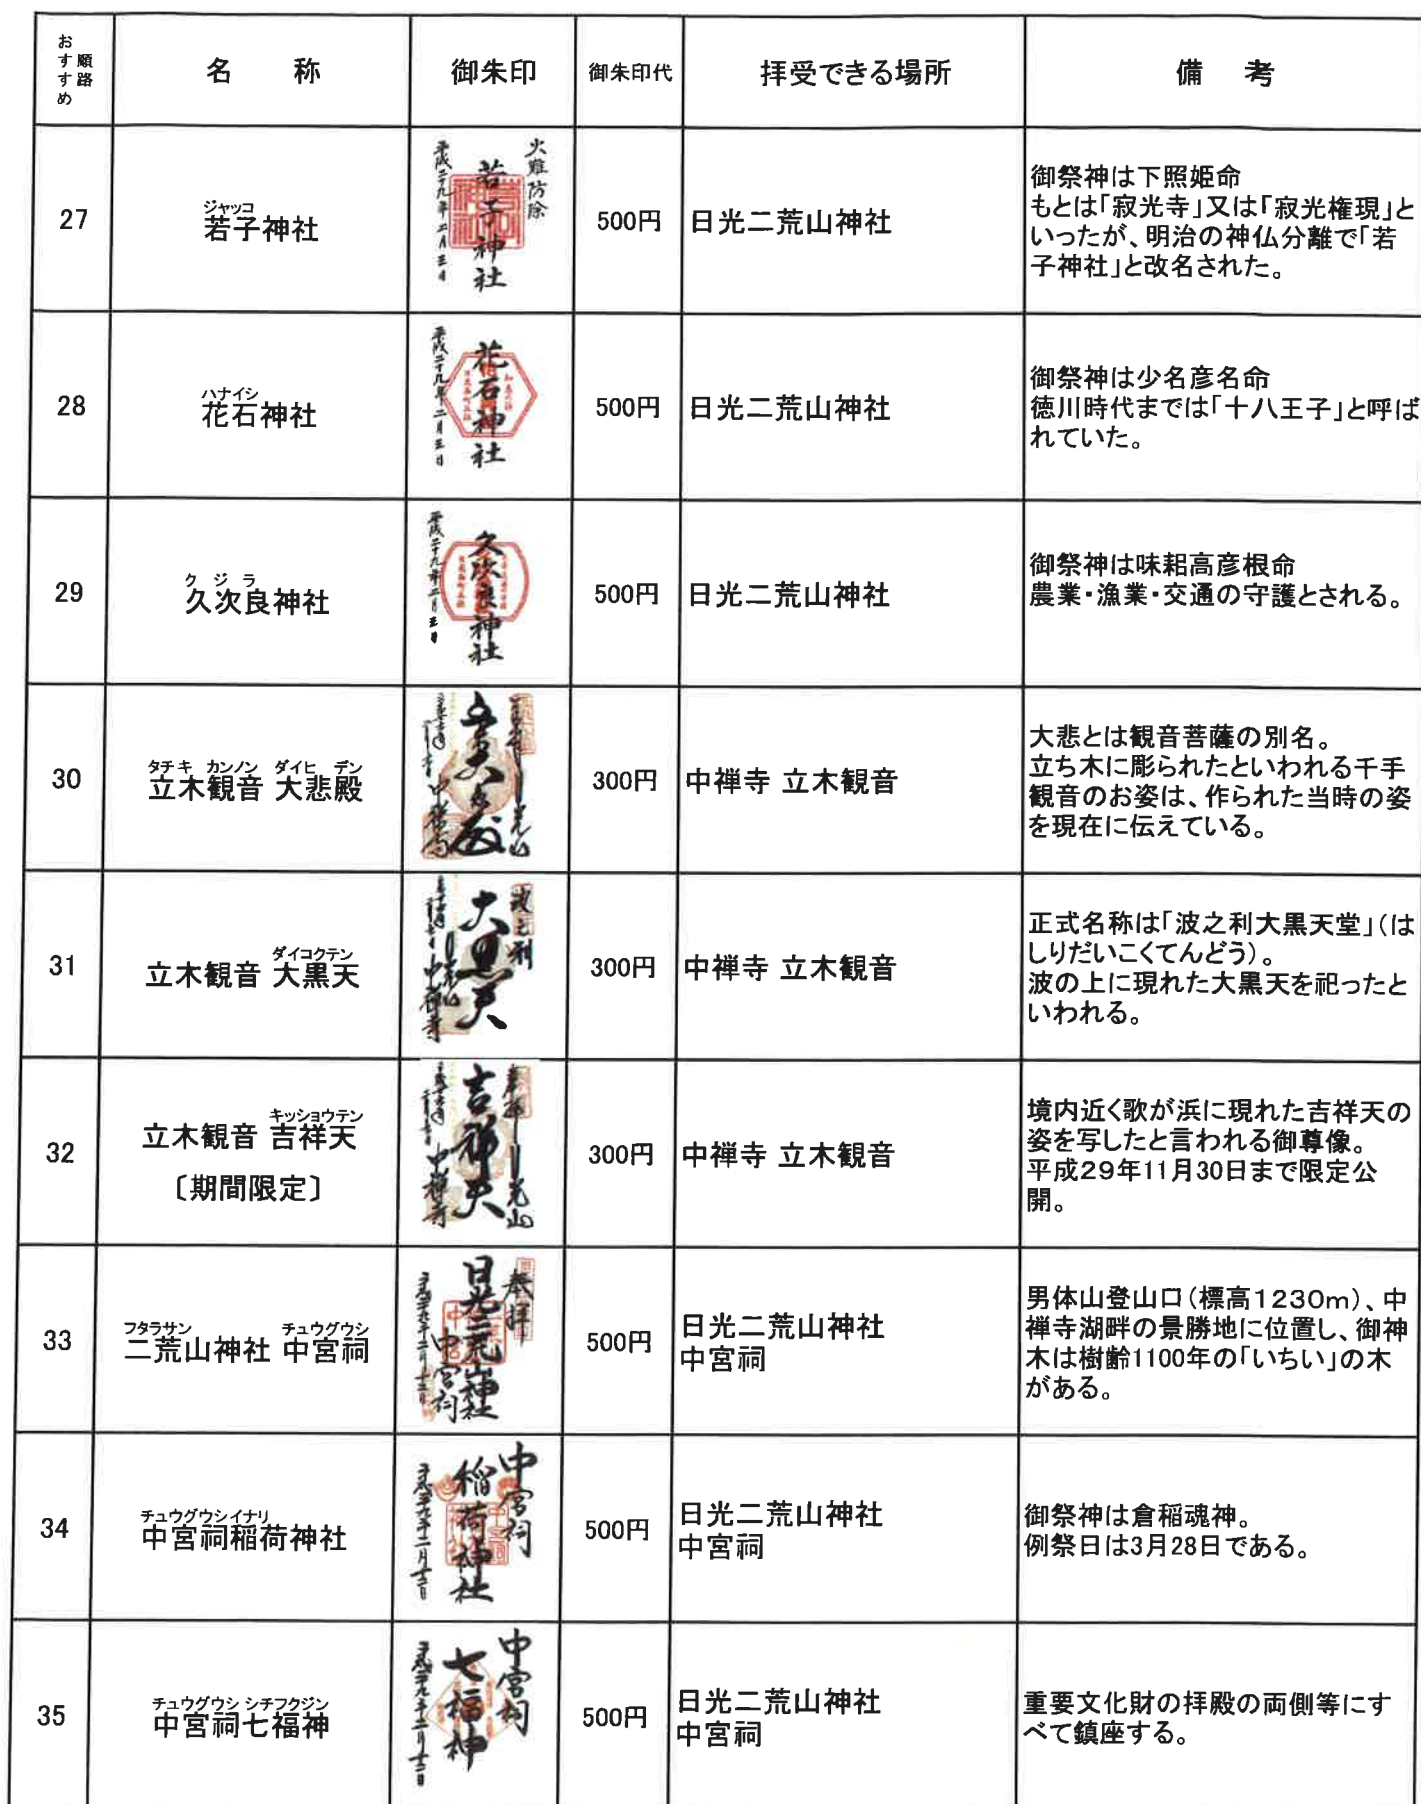 おすすめ
順路
名　称
御朱印
御朱印代
拝受できる場所
備　考
27
ジャッコ
若子神社
火難防除
若子神社
平成二十九年二月三日
500円
日光二荒山神社
御祭神は下照姫命
もとは「寂光寺」又は「寂光権現」と
いったが、明治の神仏分離で「若
子神社」と改名された。
28
ハナイシ
花石神社
花石神社
平成二十九年二月三日
500円
日光二荒山神社
御祭神は少名彦名命
徳川時代までは「十八王子」と呼ば
れていた。
29
クジラ
久次良神社
久次良神社
平成二十九年二月三日
500円
日光二荒山神社
御祭神は味耜高彦根命
農業・漁業・交通の守護とされる。
30
タチキ カンノン ダイヒ デン
立木観音 大悲殿
300円
中禅寺 立木観音
大悲とは観音菩薩の別名。
立ち木に彫られたといわれる千手
観音のお姿は、作られた当時の姿
を現在に伝えている。
31
ダイコクテン
立木観音 大黒天
波之利
大黒天
中禅寺
300円
中禅寺 立木観音
正式名称は「波之利大黒天堂」（は
しりだいこくてんどう）。
波の上に現れた大黒天を祀ったと
いわれる。
32
キッショウテン
立木観音 吉祥天
〔期間限定〕
奉拝
吉祥天
中禅寺
300円
中禅寺 立木観音
境内近く歌が浜に現れた吉祥天の
姿を写したと言われる御尊像。
平成29年11月30日まで限定公
開。
33
フタラサン チュウグウシ
二荒山神社 中宮祠
奉拝
日光二荒山神社
中宮祠
500円
日光二荒山神社
中宮祠
男体山登山口（標高１２３０ｍ）、中
禅寺湖畔の景勝地に位置し、御神
木は樹齢1100年の「いちい」の木
がある。
34
チュウグウシイナリ
中宮祠稲荷神社
中宮祠
稲荷神社
500円
日光二荒山神社
中宮祠
御祭神は倉稲魂神。
例祭日は3月28日である。
35
チュウグウシ シチフクジン
中宮祠七福神
中宮祠
七福神
500円
日光二荒山神社
中宮祠
重要文化財の拝殿の両側等にす
べて鎮座する。